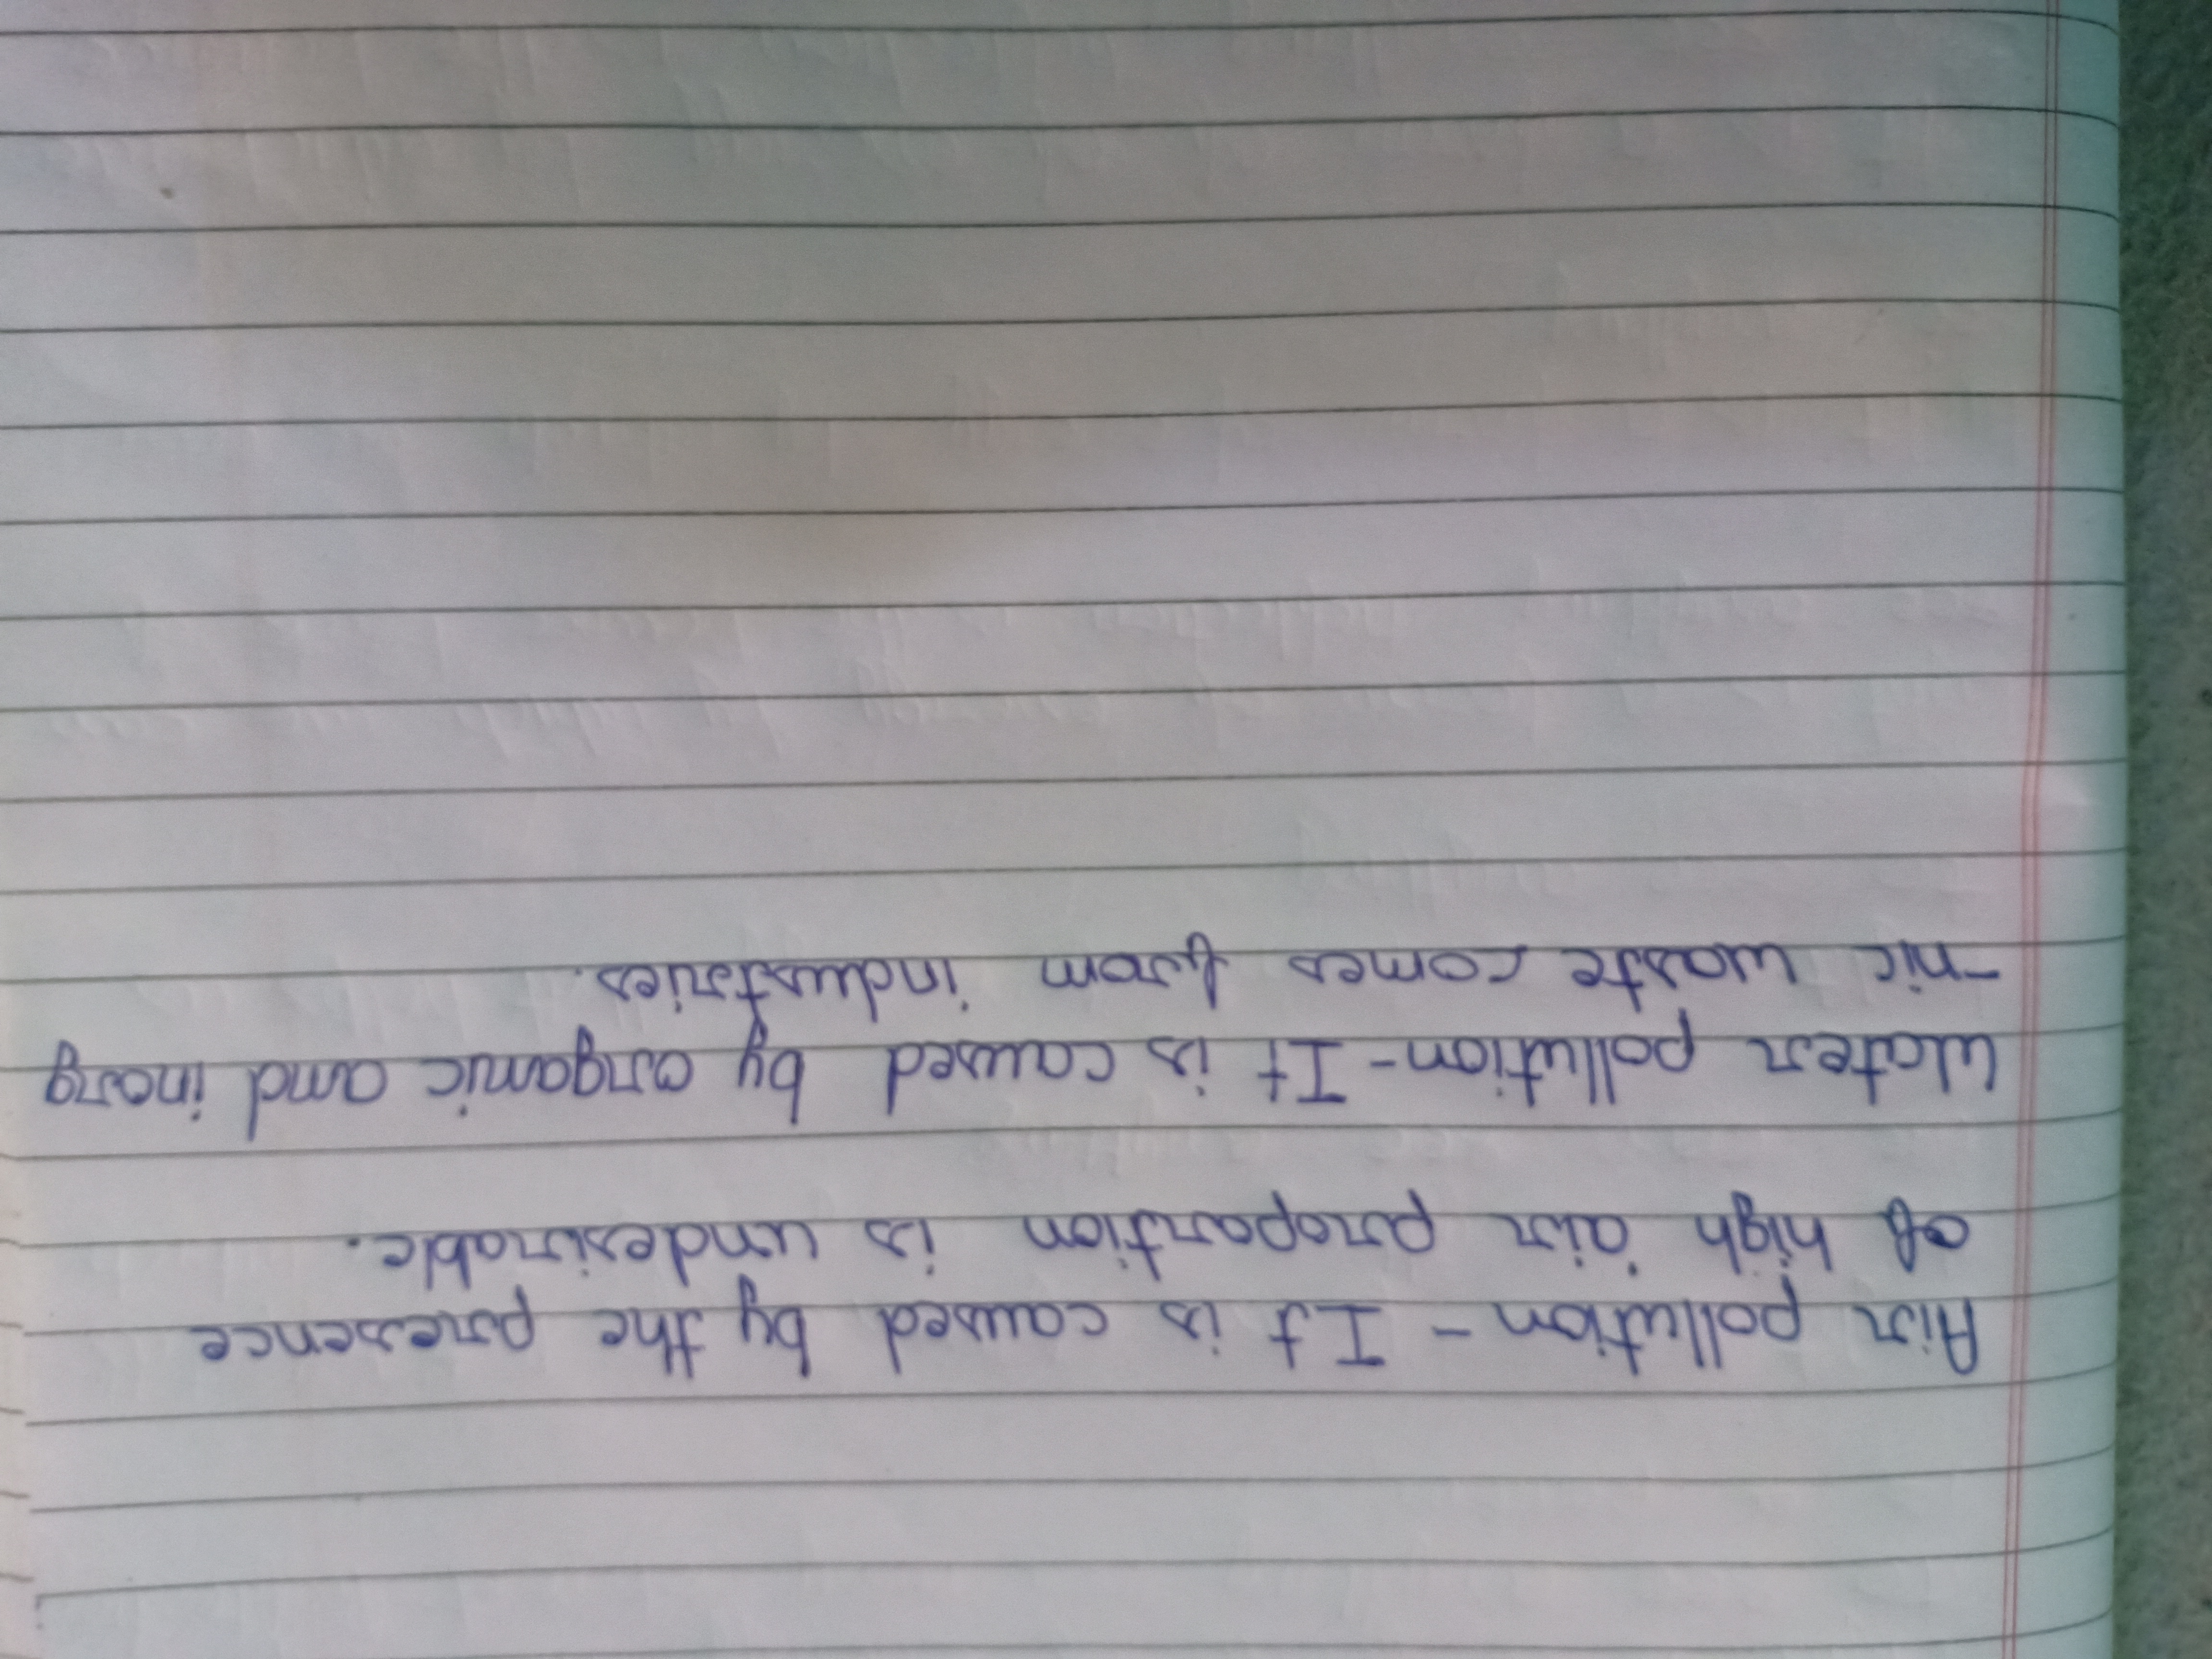 Air pollution - It is caused by the presence
of high air proportion is undesirable.
Water pollution - It is caused by organic and inorg
-nic waste comes from industries.